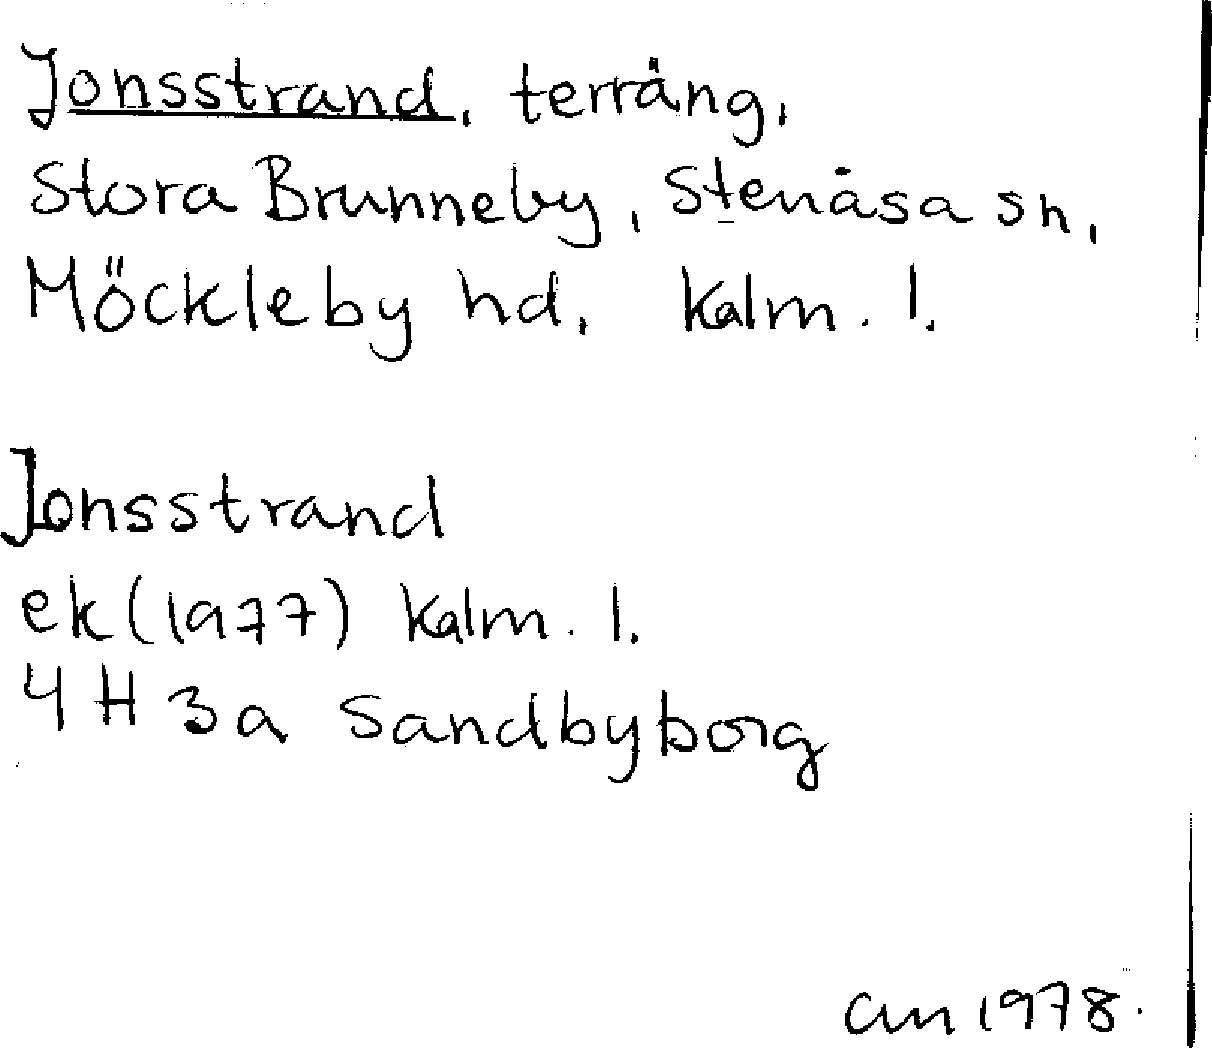 Jonsstrand, terräng,
Stora Brunneby, Stenåsa sn,
Möckleby hd, Kalm. l.
Jonsstrand
ek (1977) Kalm. l.
4 H 3a Sandbyborg
am 1978.